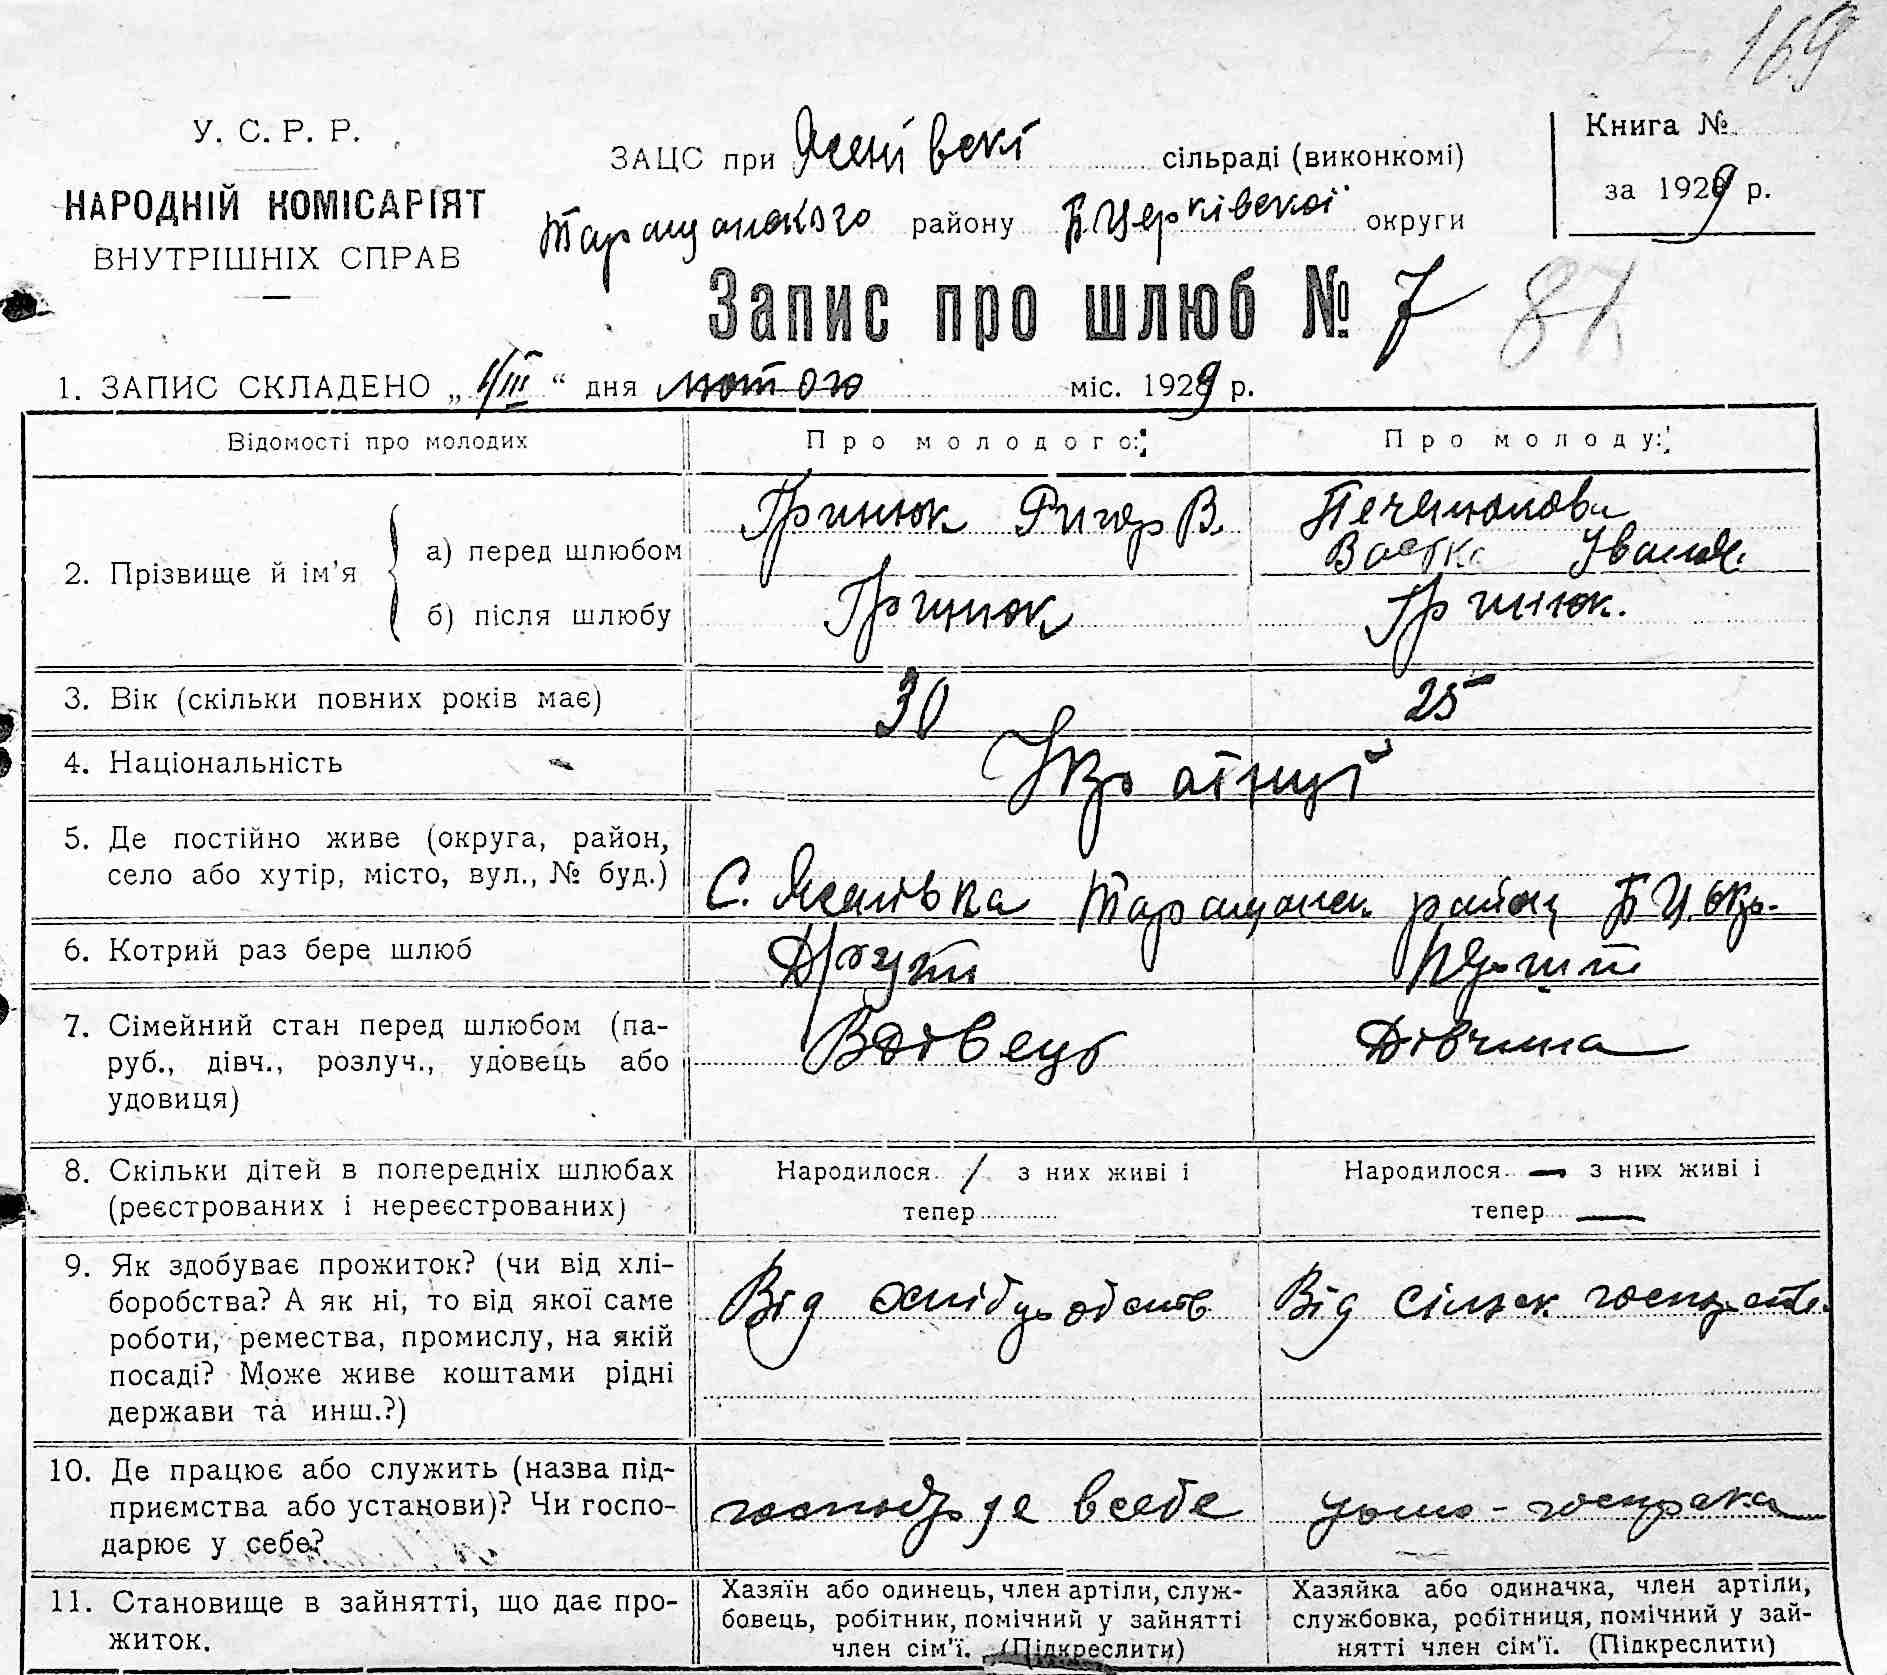 169
У. С. Р. Р.
НАРОДНІЙ КОМІСАРІЯТ
ВНУТРІШНІХ СПРАВ
ЗАЦС при Ясенівскі сільраді (виконкомі)
Таращанского району Б Церківскої округи
Книга №
за 1929 р.
Запис про шлюб № 7 87
1. ЗАПИС СКЛАДЕНО „ 1/III “ дня лютого міс. 1929 р.
Відомості про молодих
Про молодого:
Про молоду:
2. Прізвище й ім'я
а) перед шлюбом
Гринюк Ригор В.
Іванов.
б) після шлюбу
Гринюк
Гринюк.
3. Вік (скільки повних років має)
30
25
4. Національність
Українці
5. Де постійно живе (округа, район,
село або хутір, місто, вул., № буд.)
С. Ясенівка Таращанск. району Б Ц. окр.
6. Котрий раз бере шлюб
Другий
Перший
7. Сімейний стан перед шлюбом (па-
руб., дівч., розлуч., удовець або
удовиця)
Вдівець
Дівчина
8. Скільки дітей в попередніх шлюбах
(реєстрованих і нереєстрованих)
Народилося 1 з них живі і
тепер
Народилося — з них живі і
тепер —
9. Як здобуває прожиток? (чи від хлі-
боробства? А як ні, то від якої саме
роботи, ремества, промислу, на якій
посаді? Може живе коштами рідні
держави та инш.?)
Від
Від сільск. господарств.
10. Де працює або служить (назва під-
приємства або установи)? Чи госпо-
дарює у себе?
в себе
11. Становище в зайнятті, що дає про-
житок.
Хазяїн або одинець, член артіли, служ-
бовець, робітник, помічний у зайнятті
член сім'ї. (Підкреслити)
Хазяйка або одиначка, член артіли,
службовка, робітниця, помічний у зай-
нятті член сім'ї. (Підкреслити)